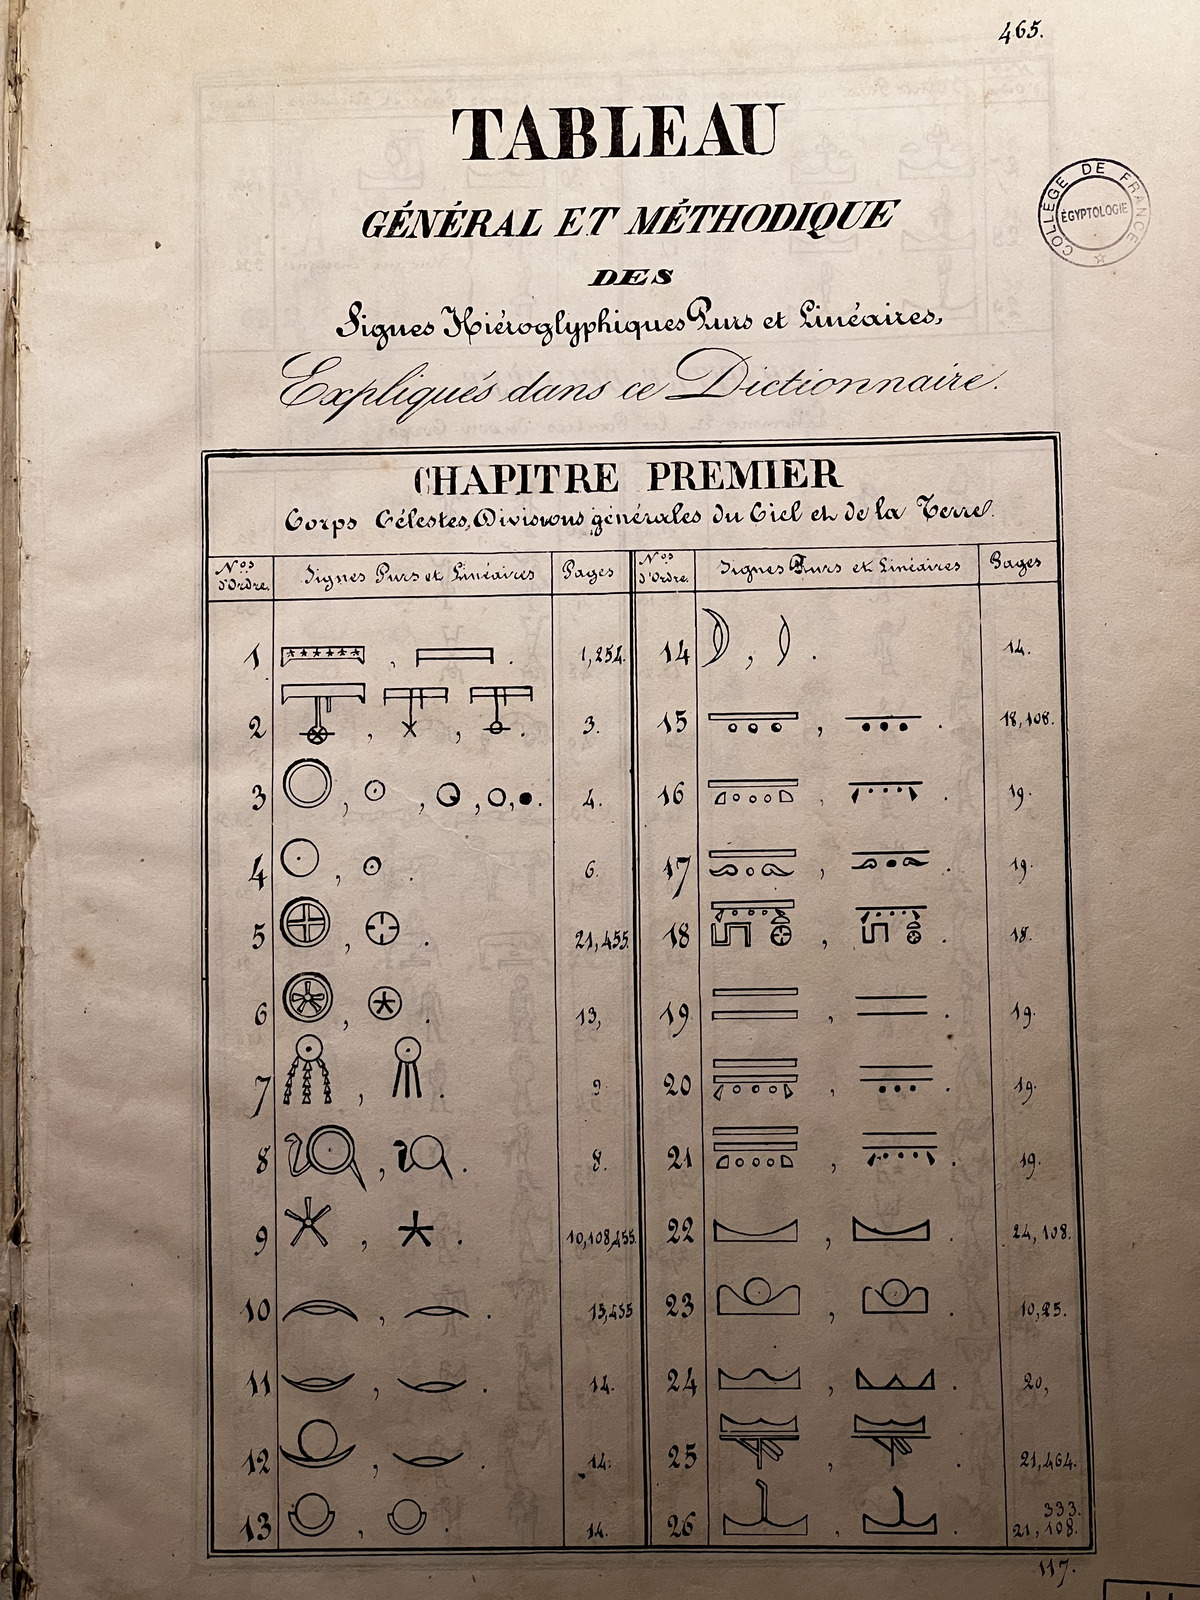 465.
TABLEAU
GÉNÉRAL ET MÉTHODIQUE
DES
Signes Hiéroglyphiques Purs et Linéaires,
Expliqués dans ce Dictionnaire.
COLLÈGE DE FRANCE
ÉGYPTOLOGIE
CHAPITRE PREMIER
Corps Célestes, Divisions générales du Ciel et de la Terre.
Nos d'Ordre. Signes Purs et Linéaires Pages Nos d'Ordre. Signes Purs et Linéaires Pages
1 , . 1,254. 14 , . 14.
2 , , . 3. 15 , . 18,108.
3 , , , , . 4. 16 , . 19.
4 , . 6. 17 , . 19.
5 , . 21,455. 18 , . 18.
6 , . 13, 19 , . 19.
7 , . 9. 20 , . 19.
8 , . 8. 21 , . 19.
9 , . 10,108,455. 22 , . 24,108.
10 , . 13,455 23 , . 10,25.
11 , . 14. 24 , . 20,
12 , . 14. 25 , . 21,464.
13 , . 14. 26 , . 333. 21,108.
117.